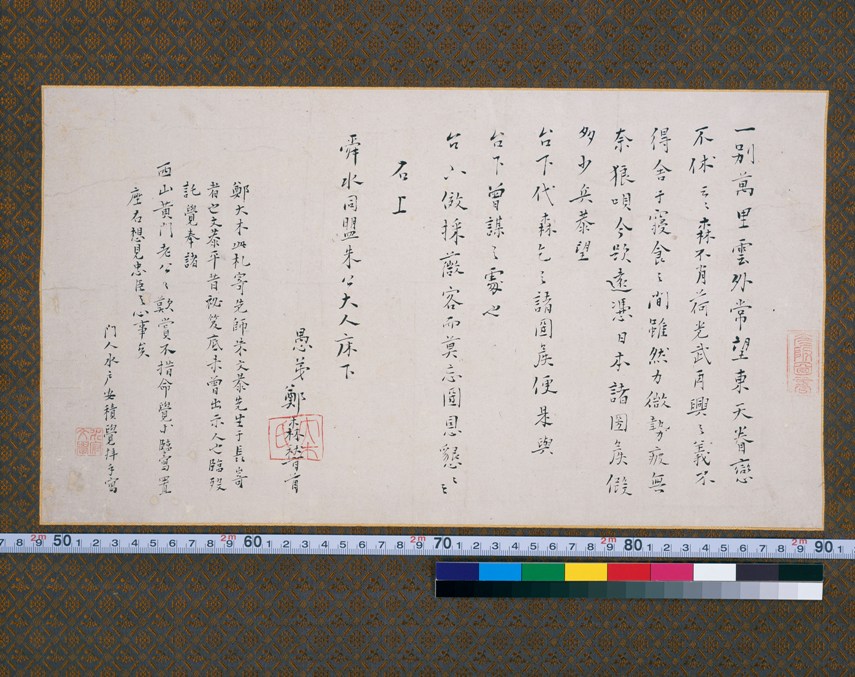 一別萬里雲外常望東天眷戀
不休云々森不肖荷光武再興之義不
得舍于寢食之間雖然力微勢疲無
奈狼唄今欲遠憑日本諸國侯假
多少兵恭望
台下代森乞之諸國侯便是與
台下曾謀之處也
台下倣採薇客而莫忘國恩懇々
右上
舜水同盟朱公大人床下
愚弟鄭森稽首
鄭大木此札寄先師朱文恭先生于長崎
者也文恭平昔祕笈底未曾出示人也臨歿
託覺奉諸
西山黃門老公々歎賞不措命覺小臨寫置
座右想見忠臣之心事矣
門人水戶安積覺拜手寫
50 60 70 80 90